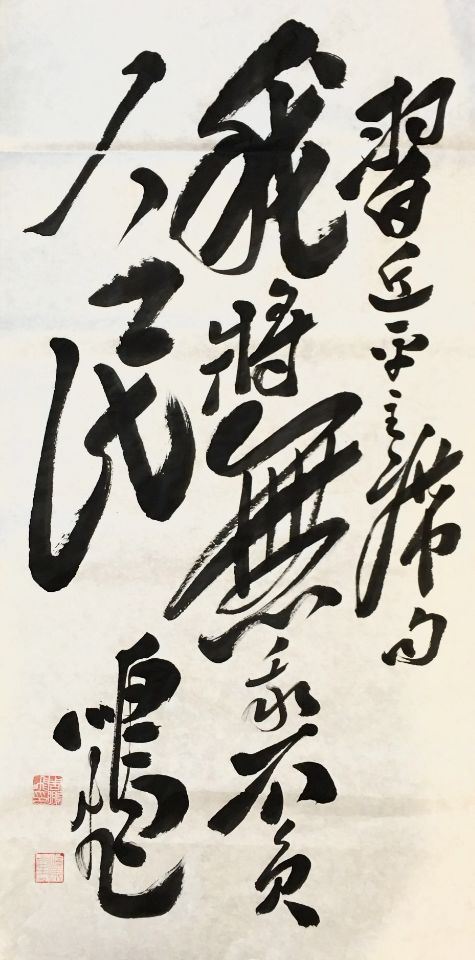 習近平主席句
我將無我不負
人民
鳴飛